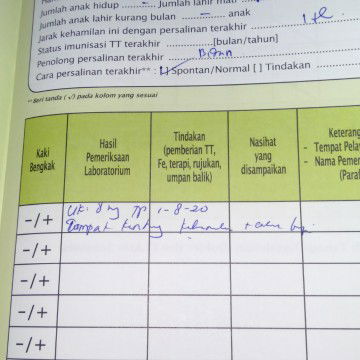 Jumlah anak hidup ........... Jumlah lahir mati
Jumlah anak lahir kurang bulan ........... anak
Jarak kehamilan ini dengan persalinan terakhir
Status imunisasi TT terakhir ...........[bulan/tahun]
Penolong persalinan terakhir
Cara persalinan terakhir** : [ ] Spontan/Normal [ ] Tindakan
** Beri tanda (√) pada kolom yang sesuai
Kaki Bengkak
Hasil Pemeriksaan Laboratorium
Tindakan (pemberian TT, Fe, terapi, rujukan, umpan balik)
Nasihat yang disampaikan
- Tempat
- Nama
-/+
TP 1-8-20
-/+
-/+
-/+
-/+